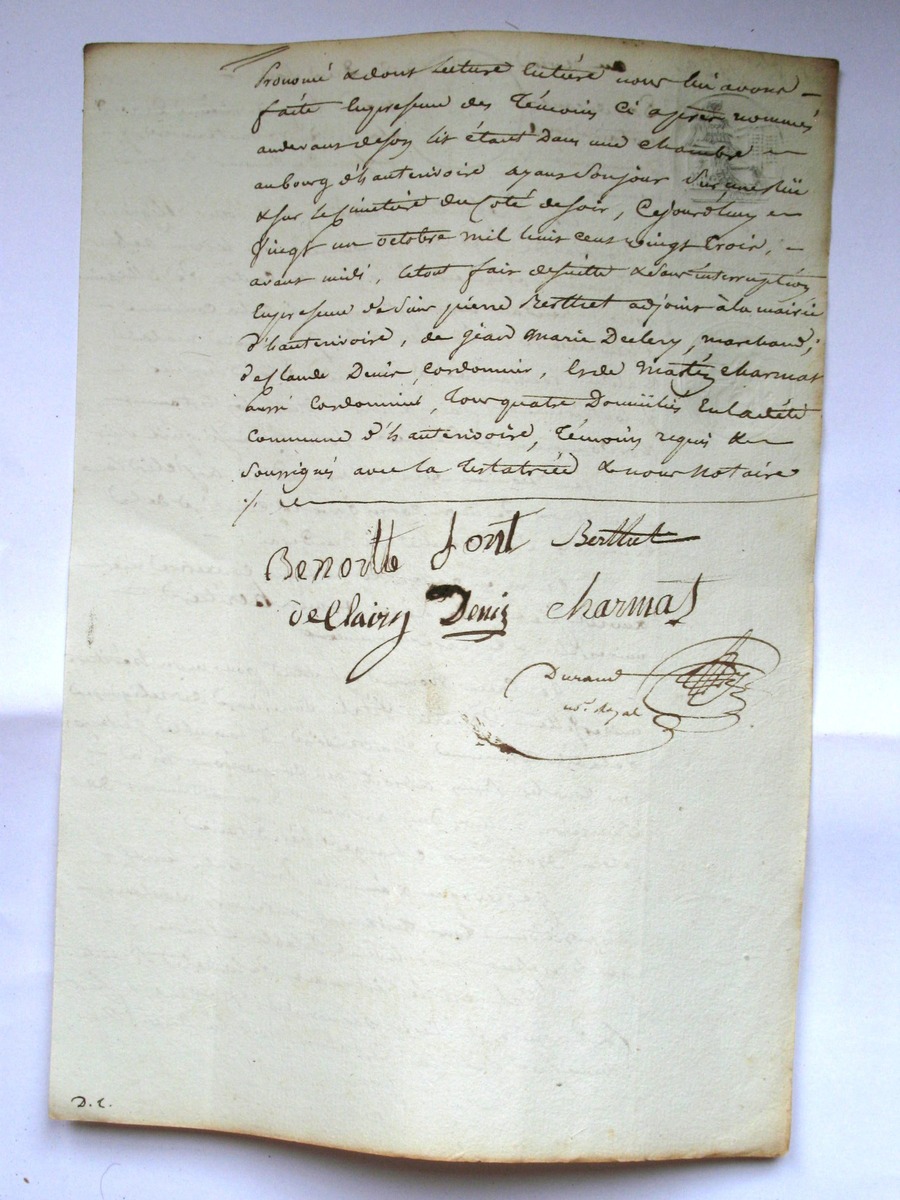 Prononcé & dont lecture Entière nous lui avons
faite En presence des Témoins Ci après nommés
au devant de son lit étant Dans une chambre
au bourg d'hauterivoire ayant Son jour Sur une
& sur le Cimetière du Coté de soir, Cejourdhuy
Vingt un octobre mil huit Cent vingt trois,
avant midi, le tout fait de suitte & sans interruption
En presence de Sieur pierre Berthet adjoint à la mairie
d'hauterivoire, de jean Marie Declery, marchand,
de Claude Denis, Cordonnier, & de Martin Charmat
aussi Cordonnier, tous quatre Domiciliés En la dite
Commune d'hauterivoire, Témoins requis &
Soussignés avec la Testatrice & nous Notaire
Benoitte font Berthet
deClairy Denis Charmat
Durand
no.re Royal
D. C.